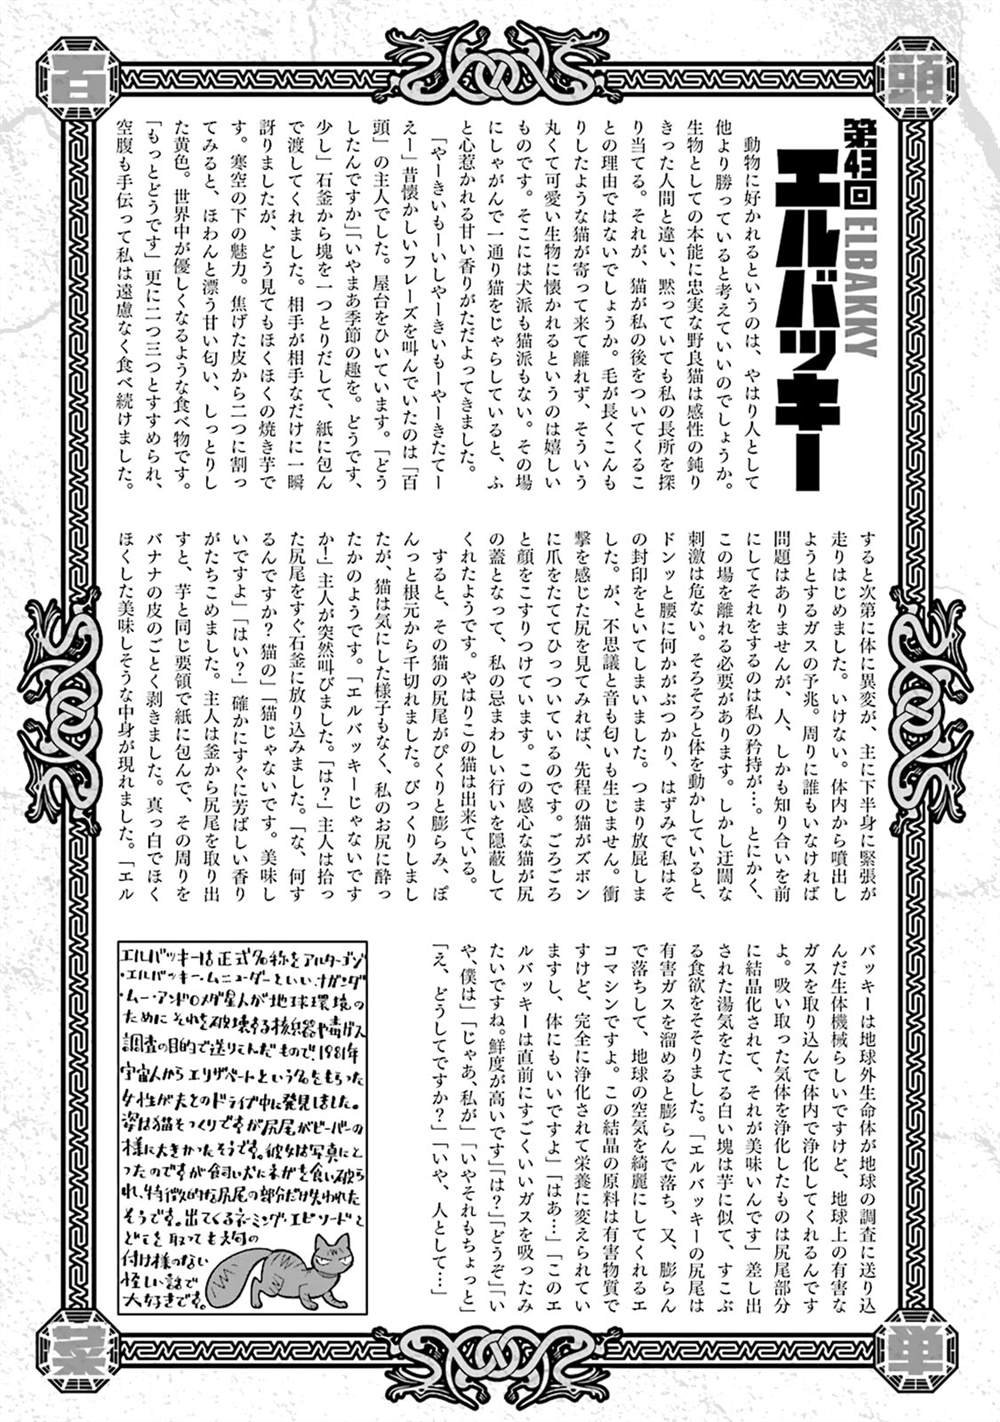 百
頭
第43回
エルバッキー
ELBAKKY
　動物に好かれるというのは、やはり人として
他より勝っていると考えていいのでしょうか。
生物としての本能に忠実な野良猫は感性の鈍り
きった人間と違い、黙っていても私の長所を探
り当てる。それが、猫が私の後をついてくるこ
との理由ではないでしょうか。毛が長くこんも
りしたような猫が寄って来て離れず、そういう
丸くて可愛い生物に懐かれるというのは嬉しい
ものです。そこには犬派も猫派もない。その場
にしゃがんで一通り猫をじゃらしていると、ふ
と心惹かれる甘い香りがただよってきました。
　「やーきいもーいしやーきいもーやーきたてー
えー」昔懐かしいフレーズを叫んでいたのは「百
頭」の主人でした。屋台をひいています。「どう
したんですか」「いやまあ季節の趣を。どうです、
少し」石釜から塊を一つとりだして、紙に包ん
で渡してくれました。相手が相手なだけに一瞬
訝りましたが、どう見てもほくほくの焼き芋で
す。寒空の下の魅力。焦げた皮から二つに割っ
てみると、ほわんと漂う甘い匂い、しっとりし
た黄色。世界中が優しくなるような食べ物です。
「もっとどうです」更に二つ三つとすすめられ、
空腹も手伝って私は遠慮なく食べ続けました。
すると次第に体に異変が、主に下半身に緊張が
走りはじめました。いけない。体内から噴出し
ようとするガスの予兆。周りに誰もいなければ
問題はありませんが、人、しかも知り合いを前
にしてそれをするのは私の矜持が…。とにかく、
この場を離れる必要があります。しかし迂闊な
刺激は危ない。そろそろと体を動かしていると、
ドンッと腰に何かがぶつかり、はずみで私はそ
の封印をといてしまいました。つまり放屁しま
した。が、不思議と音も匂いも生じません。衝
撃を感じた尻を見てみれば、先程の猫がズボン
に爪をたててひっついているのです。ごろごろ
と顔をこすりつけています。この感心な猫が尻
の蓋となって、私の忌まわしい行いを隠蔽して
くれたようです。やはりこの猫は出来ている。
　すると、その猫の尻尾がぴくりと膨らみ、ぽ
んっと根元から千切れました。びっくりしまし
たが、猫は気にした様子もなく、私のお尻に酔っ
たかのようです。「エルバッキーじゃないです
か！」主人が突然叫びました。「は？」主人は拾っ
た尻尾をすぐ石釜に放り込みました。「な、何す
るんですか？猫の」「猫じゃないです。美味し
いですよ」「はい？」確かにすぐに芳ばしい香り
がたちこめました。主人は釜から尻尾を取り出
すと、芋と同じ要領で紙に包んで、その周りを
バナナの皮のごとく剥きました。真っ白でほく
ほくした美味しそうな中身が現れました。「エル
バッキーは地球外生命体が地球の調査に送り込
んだ生体機械らしいですけど、地球上の有害な
ガスを取り込んで体内で浄化してくれるんです
よ。吸い取った気体を浄化したものは尻尾部分
に結晶化されて、それが美味いんです」差し出
された湯気をたてる白い塊は芋に似て、すこぶ
る食欲をそそりました。「エルバッキーの尻尾は
有害ガスを溜めると膨らんで落ち、又、膨らん
で落ちして、地球の空気を綺麗にしてくれるエ
コマシンですよ。この結晶の原料は有害物質で
すけど、完全に浄化されて栄養に変えられてい
ますし、体にもいいですよ」「はあ…」「このエ
ルバッキーは直前にすごくいいガスを吸ったみ
たいですね。鮮度が高いです」「は？」「どうぞ」「い
や、僕は」「じゃあ、私が」「いやそれもちょっと」
「え、どうしてですか？」「いや、人として…」
エルバッキーは正式名称をアルターゴゾ
・エルバッキー・ムニューダーといい、サガンダ
・ムー・アンドロメダ星人が地球環境の
ために それを破壊する核兵器や毒ガス
調査の目的で送りこんだもので1981年
宇宙人からエリザベートという名をもらった
女性が夫とのドライブ中に発見しました。
姿は猫そっくりですが尻尾がビーバーの
様に大きかったそうです。彼女は写真にと
ったのですが飼い犬にネガを食い破ら
れ、特徴的な尻尾の部分だけ失われた
そうです。出てくるネーミング・エピソードと
どこを取っても文句の
付け様のない
怪しい話で
大好きです。
菜
単